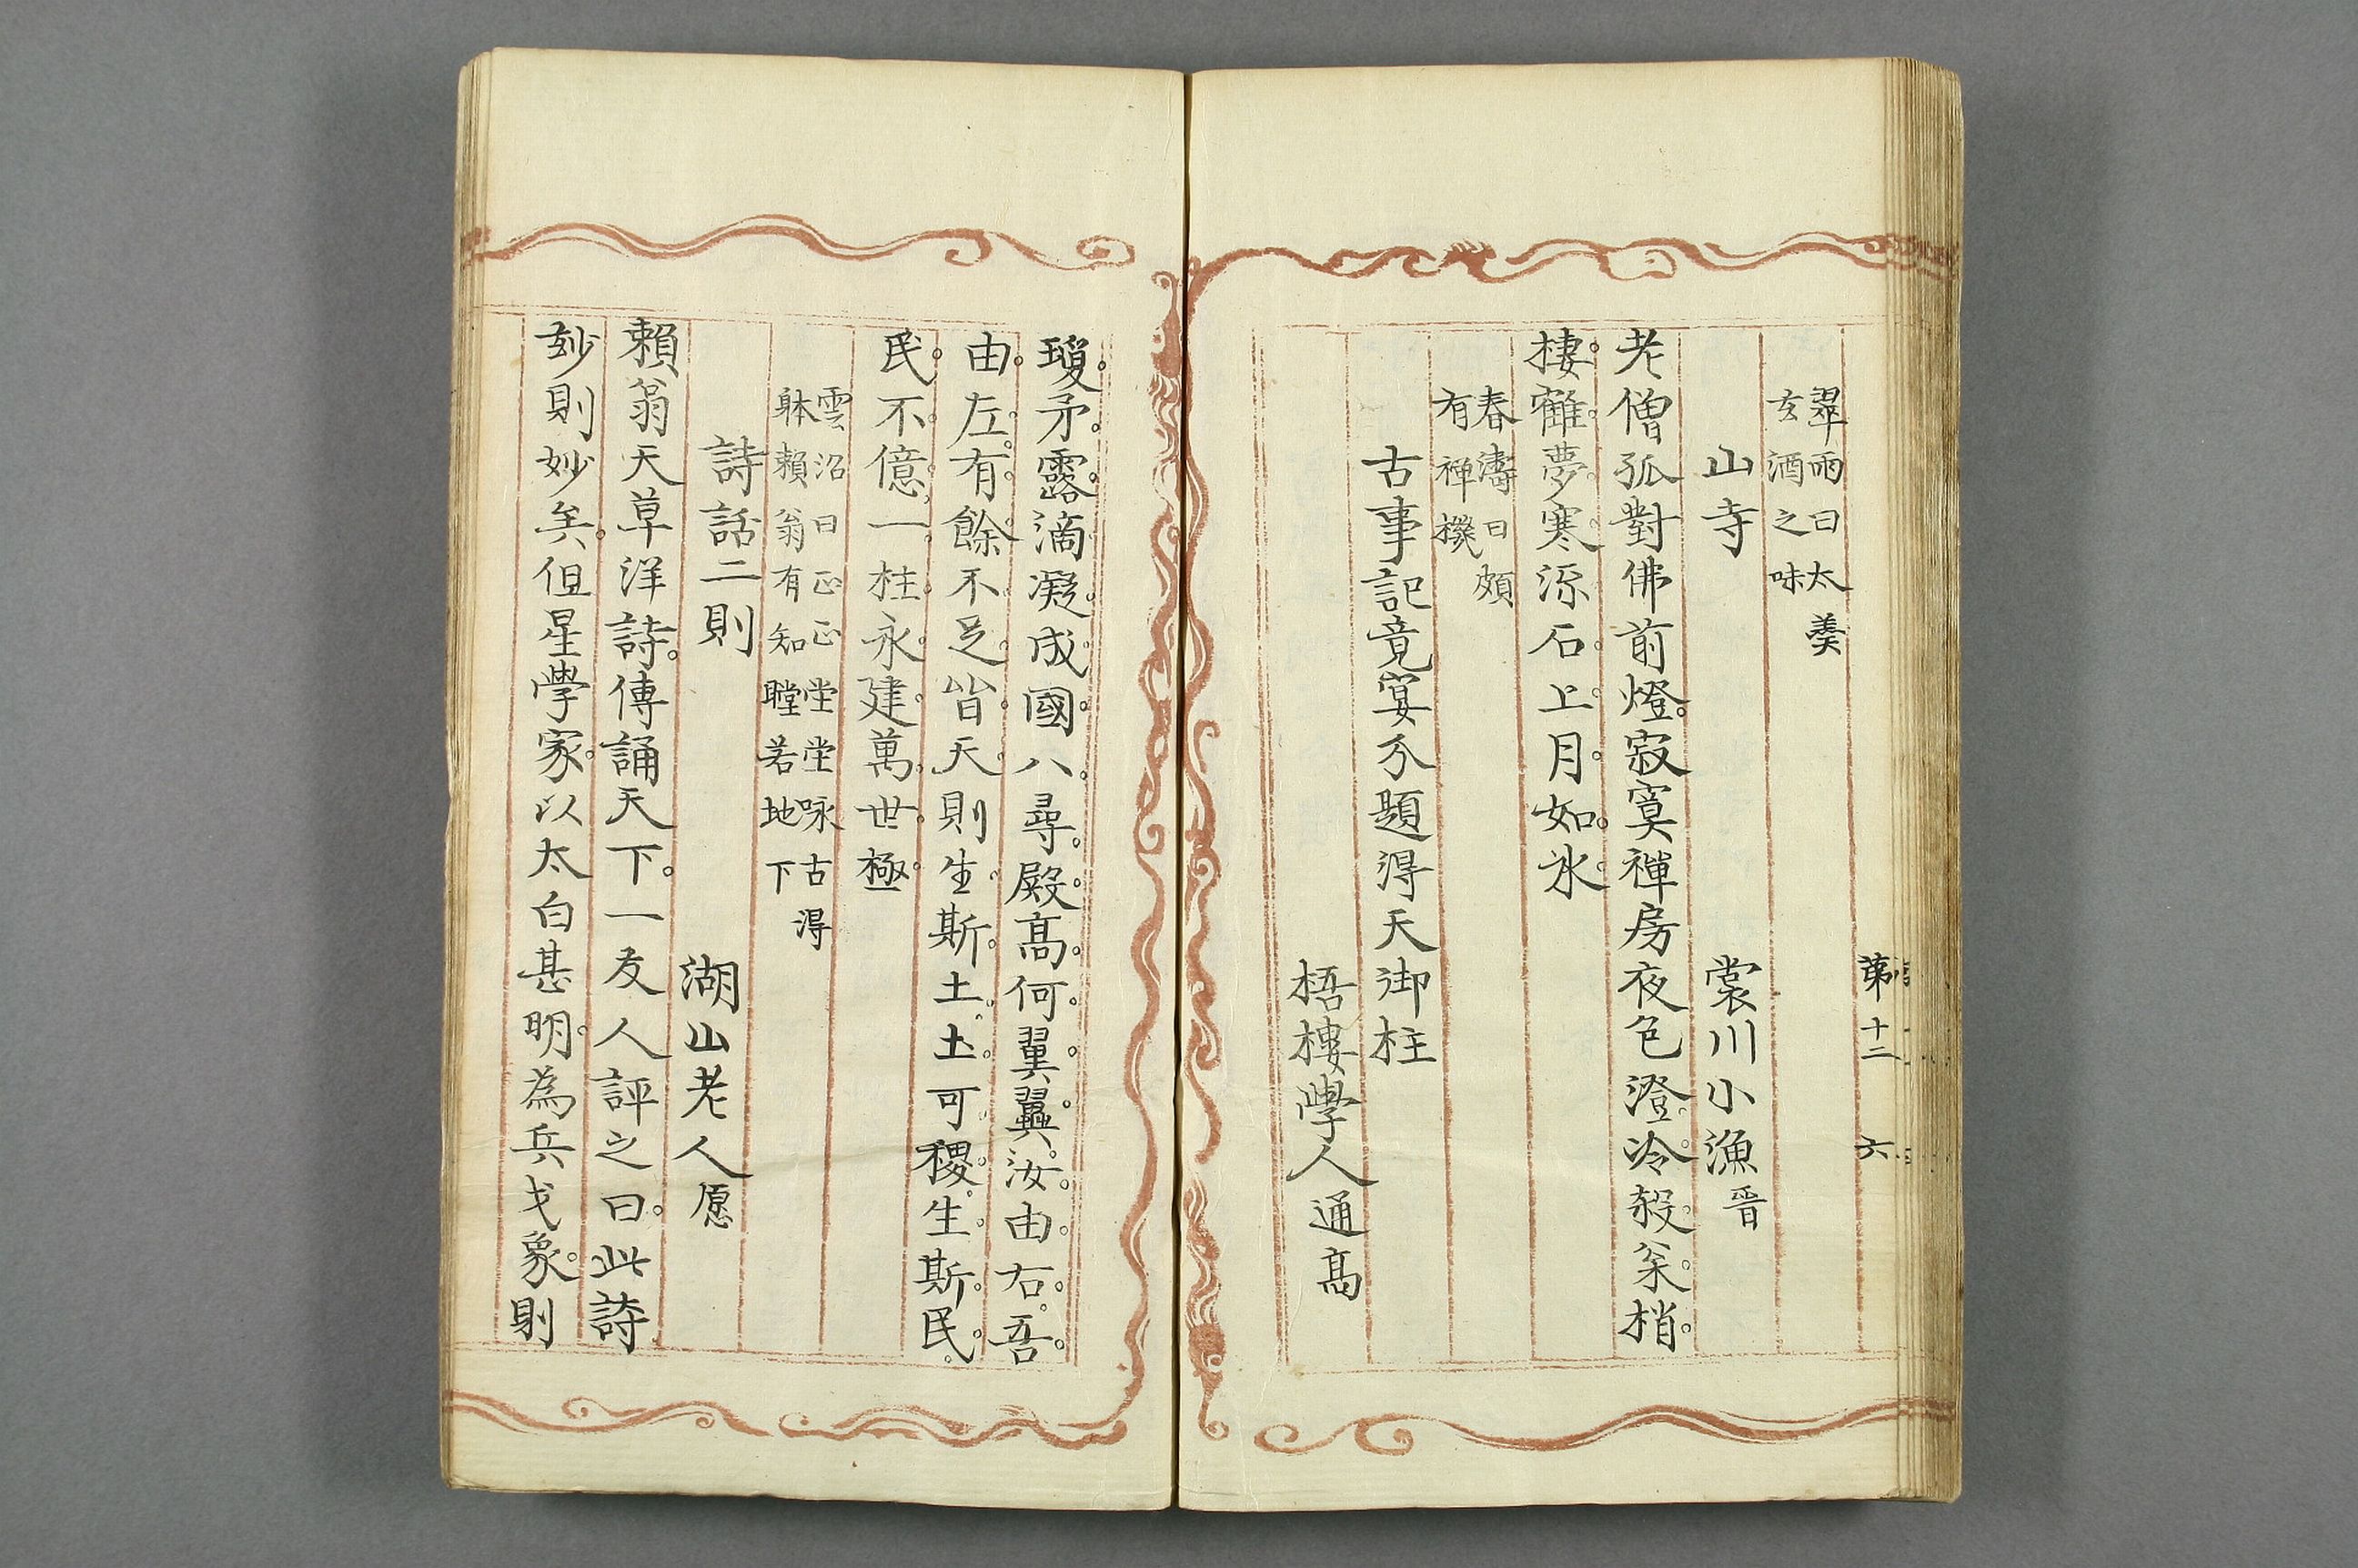 第十二 六
翠雨曰太羹
玄酒之味
山寺 裳川小漁晉
老僧孤對佛前燈。寂寞禪房夜色澄。冷殺枀梢
棲寉夢寒深石上月如氷
春濤曰頗
有禅機
古事記竟宴分題得天御柱
梧樓學人通髙
瓊矛露滴凝成國八尋殿髙何翼翼汝由右吾
由左有餘不足皆天則生斯土土可稷生斯民
民不億一柱永建萬世極
雲沼曰正正堂堂咏古得
躰賴翁有知瞠若地下
詩話二則
湖山老人愿
賴翁天草洋詩。傳誦天下。一友人評之曰。此詩
妙則妙矣。但星學家。以太白甚明。為兵戈象。則